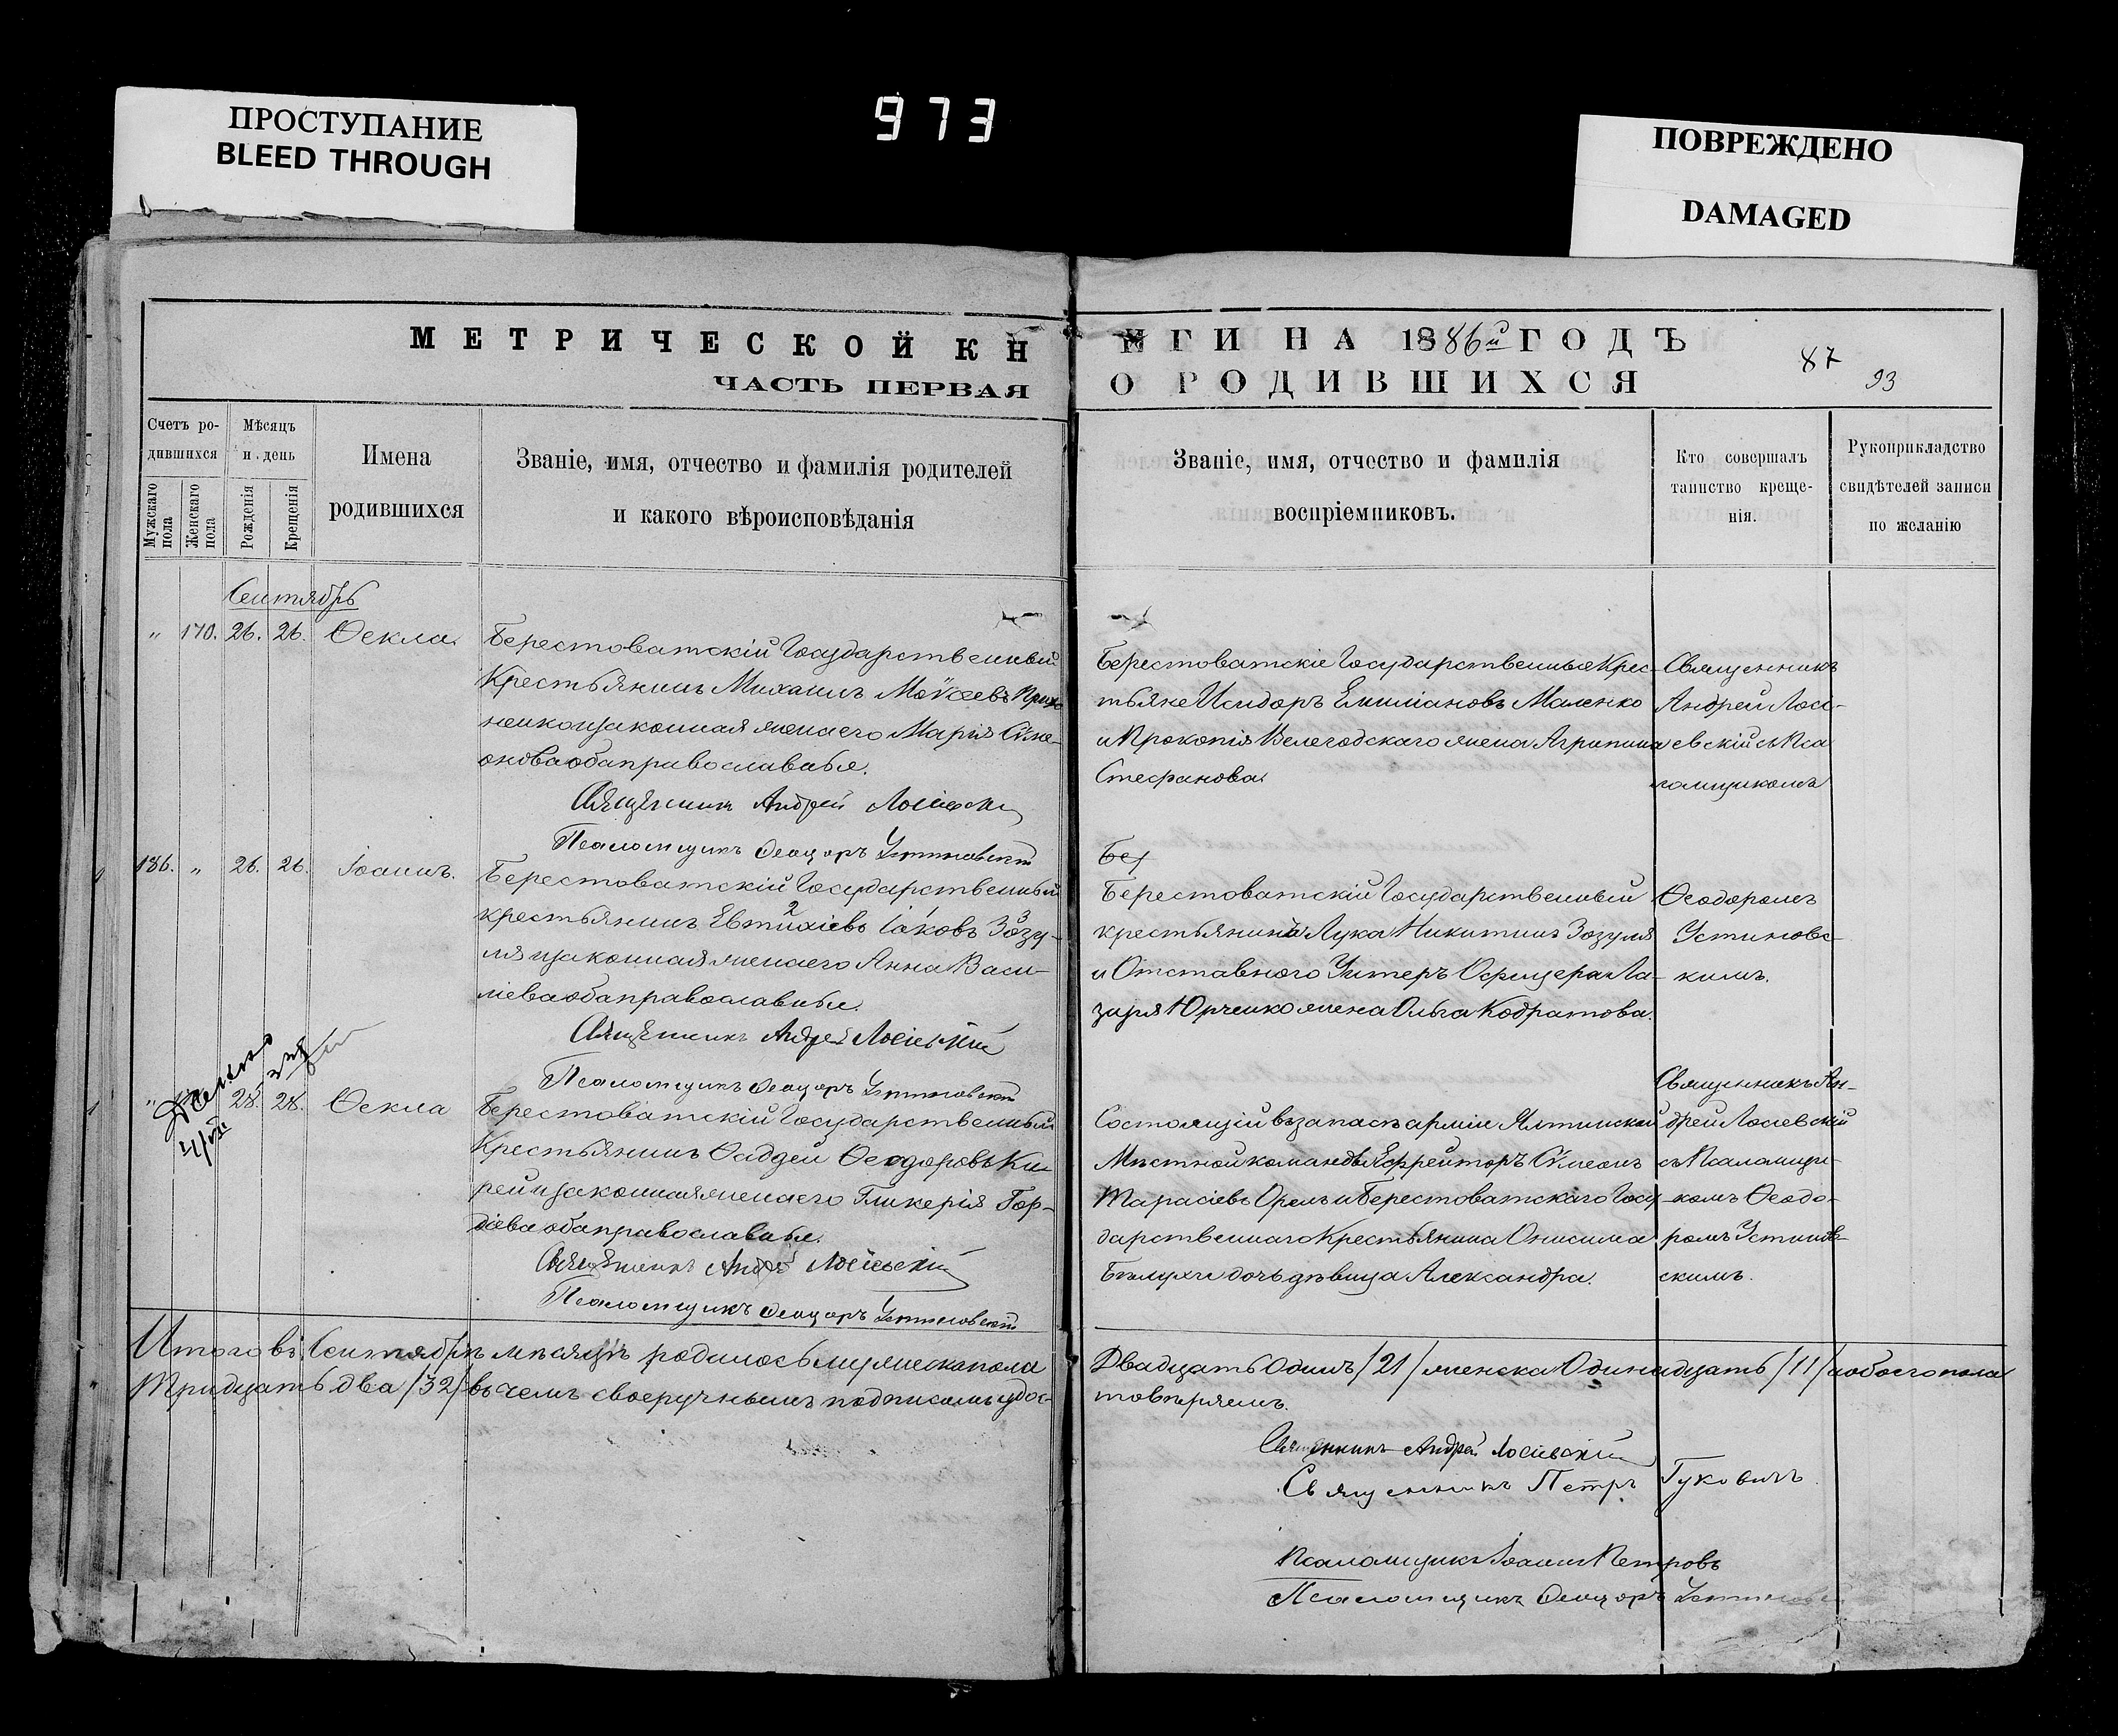 ПРОСТУПАНИЕ
BLEED THROUGH
973
ПОВРЕЖДЕНО
DAMAGED
МЕТРИЧЕСКОЙ КН
ЧАСТЬ ПЕРВАЯ
ИГИ НА 1886й ГОДЪ
О РОДИВШИХСЯ
87
93
Счетъ ро-
дившихся
Мужскаго пола
Женскаго пола
Мѣсяцъ
и день
Рожденія
Крещенія
Имена
родившихся
Званіе, имя, отчество и фамилія родителей
и какого вѣроисповѣданія
Званіе, имя, отчество и фамилія
воспріемниковъ.
Кто совершалъ
таинство креще-
нія.
Рукоприкладство
свидѣтелей записи
по желанію
Сентябрь
" 170. 26. 26. Ѳекла.
Берестоватскій Государственный
Крестьянинъ Михаилъ Моѵсеевъ
законная жена его Марія Сѵме-
онова оба православные.
Священникъ Андрей Лосіевскій
Псаломщикъ Ѳеодоръ Устиновскій
Берестоватскіе Государственные Крес-
тьяне Исидоръ Емиліановъ Маленко
и Прокопія Велегодскаго жена Агрипина
Стефанова.
Священникъ
Андрей Лосі-
евскій съ Пса
ломщикомъ
186. " 26. 26. Іоаннъ.
Берестоватскій Государственный
крестьянинъ Евтихіевъ 2 Іаковъ Зозу- 3
ля и законная жена его Анна Васи-
ліева оба православные.
Священникъ Андрей Лосіевскій
Псаломщикъ Ѳеодоръ Устиновскій
Бер
Берестоватскій Государственный
крестьянинъ Лука Никитинъ Зозуля
и Отставного Унтеръ Офицера Ла-
заря Юрченко жена Ольга Кодратова.
Ѳеодоромъ
Устиновс-
кимъ.
" 28. 28. Ѳекла
Берестоватскій Государственный
Крестьянинъ Ѳаддей Ѳеодоровъ Ки-
рей и законная жена его Гликерія Гор-
діева оба православные.
Священникъ Андрей Лосіевскій
Псаломщикъ Ѳеодоръ Устиновскій
Состоящій въ запасѣ арміи Ялтинской
Мѣстной команды Ефрейторъ Сѵмеонъ
Тарасіевъ Орелъ и Берестоватскаго Госу-
дарственнаго Крестьянина Онисима
Бѣлухи дочь дѣвица Александра.
Священникъ Ан-
дрей Лосіевскій
съ Псаломщи-
комъ Ѳеодо-
ромъ Устинов-
скимъ.
Итого въ Сентябрѣ мѣсяцѣ родилось мужеска пола
Двадцать Одинъ /21/ женска Одинадцать /11/ и обоего пола
Тридцать два /32/ въ чемъ своеручнымъ подписомъ удос-
товѣряемъ.
Священникъ Андрей Лосіевскій
Священникъ Петръ Гуковичъ
Псаломщикъ Іоаннъ Петровъ
Псаломщикъ Ѳеодоръ